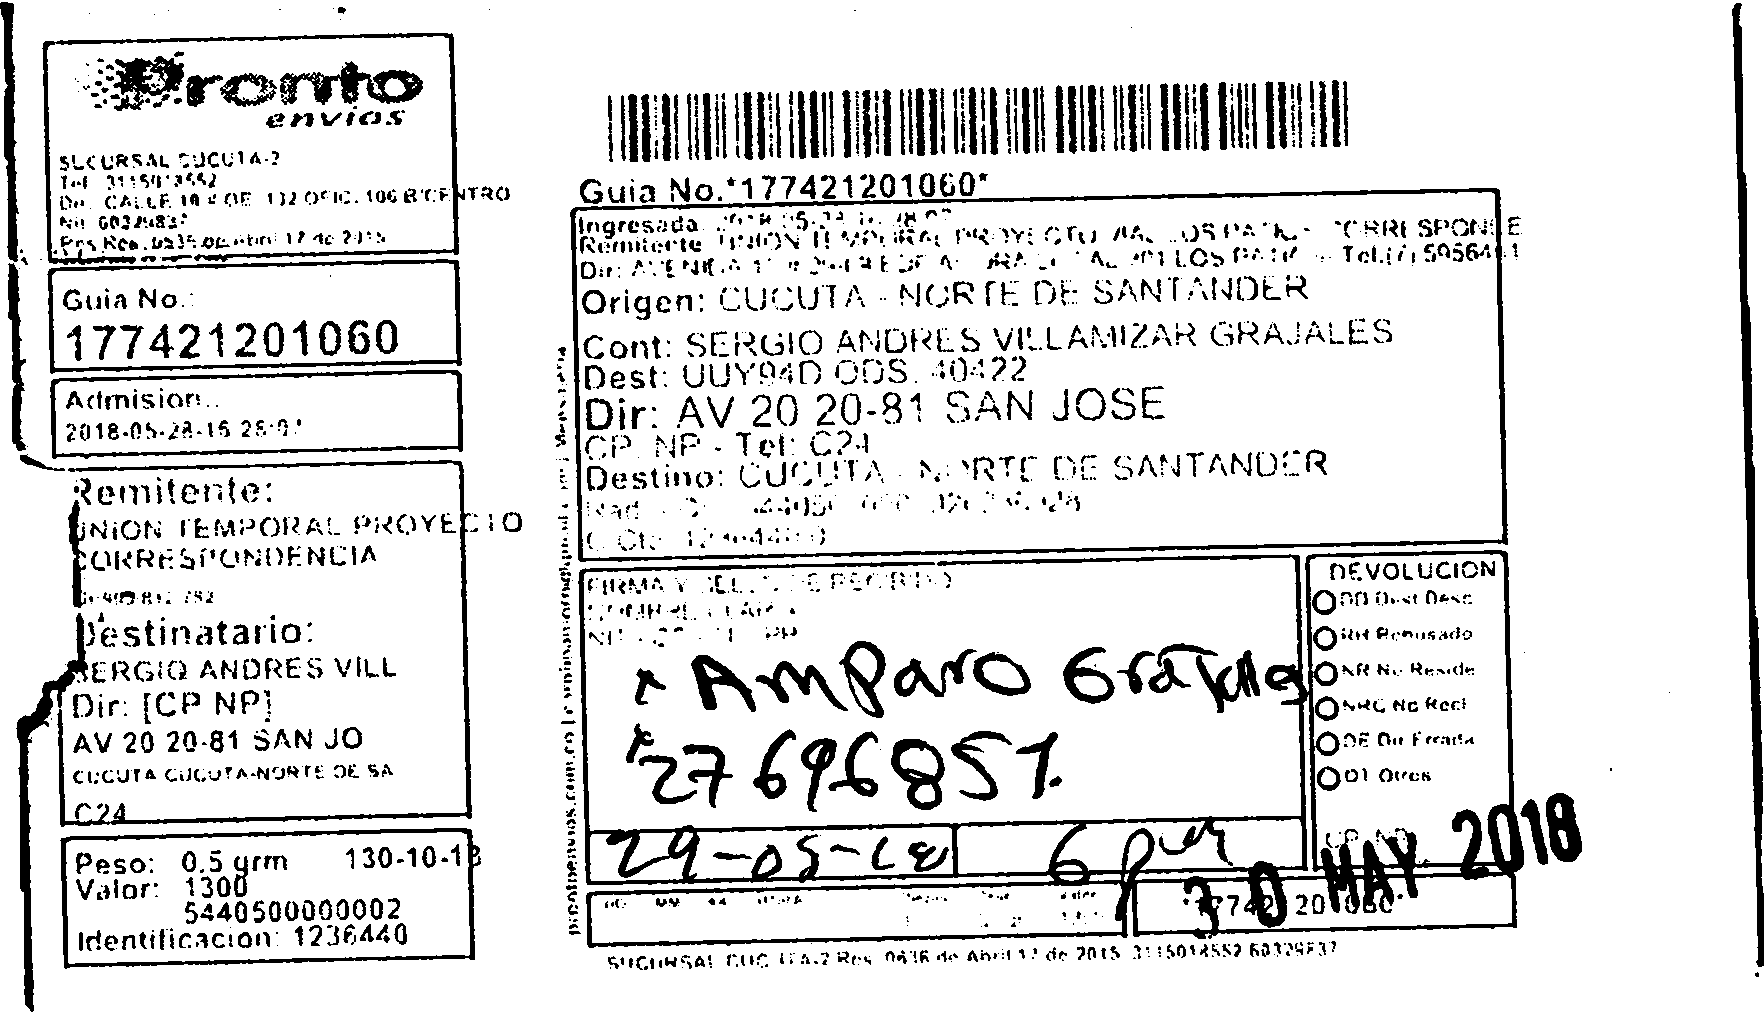 Pronto
envios
SUCURSAL CUCUTA-2
Tel: 3115018552
Dir: CALLE 10 # 0E 132 OFIC. 106 B/CENTRO
Nit 60329837
Res Res. 0636 de Abril 17 de 2015
Guia No.:
177421201060
Admision..
2018-05-28-16
Remitente:
UNION TEMPORAL PROYECTO
CORRESPONDENCIA
Destinatario:
SERGIO ANDRES VILL
Dir: [CP NP]
AV 20 20-81 SAN JO
CUCUTA CUCUTA-NORTE DE SA
C24
Peso: 0.5 grm 130-10-18
Valor: 1300
5440500000002
Identificacion: 1236440
Guia No.*177421201060*
Ingresada
Remitente UNION TEMPORAL PROYECTO LOS CORRESPONDE
Dir: AVENIDA LOS Tel.(7)
Origen: CUCUTA - NORTE DE SANTANDER
Cont: SERGIO ANDRES VILLAMIZAR GRAJALES
Dest: UUY94D ODS. 40422
Dir: AV 20 20-81 SAN JOSE
CP. NP - Tel: C24
Destino: CUCUTA - NORTE DE SANTANDER
FIRMA Y SELLO DE RECIBIDO
NOMBRE CLARO
x Amparo Grajales
x 27696851.
29-05-18 6 pm
DEVOLUCION
DD Dest Desc
RH Rehusado
NR No Reside
NRC No Recl
DE Dir Errada
OT Otros
30 MAY. 2018
*177421201060*
SUCURSAL CUCUTA-2 Res. 0636 de Abril 17 de 2015 3115018552 60329837